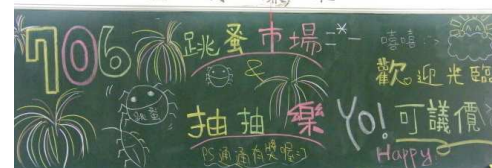 706 跳蚤市場
&
抽抽樂
PS通通有獎喔:)
跳蚤
嘻嘻
歡迎光臨
Yo! 可議價
Happy